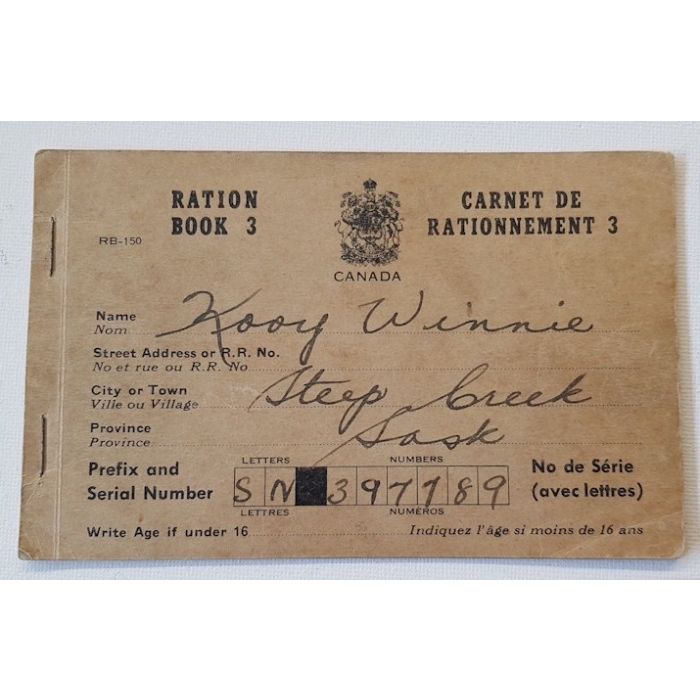 RATION BOOK 3
CARNET DE RATIONNEMENT 3
RB-150
CANADA
Name Kooy Winnie
Nom
Street Address or R.R. No.
No et rue ou R.R. No
City or Town Steep Creek
Ville ou Village
Province Sask
Province
LETTERS NUMBERS
Prefix and Serial Number SN 397789 No de Série (avec lettres)
LETTRES NUMÉROS
Write Age if under 16 Indiquez l'âge si moins de 16 ans